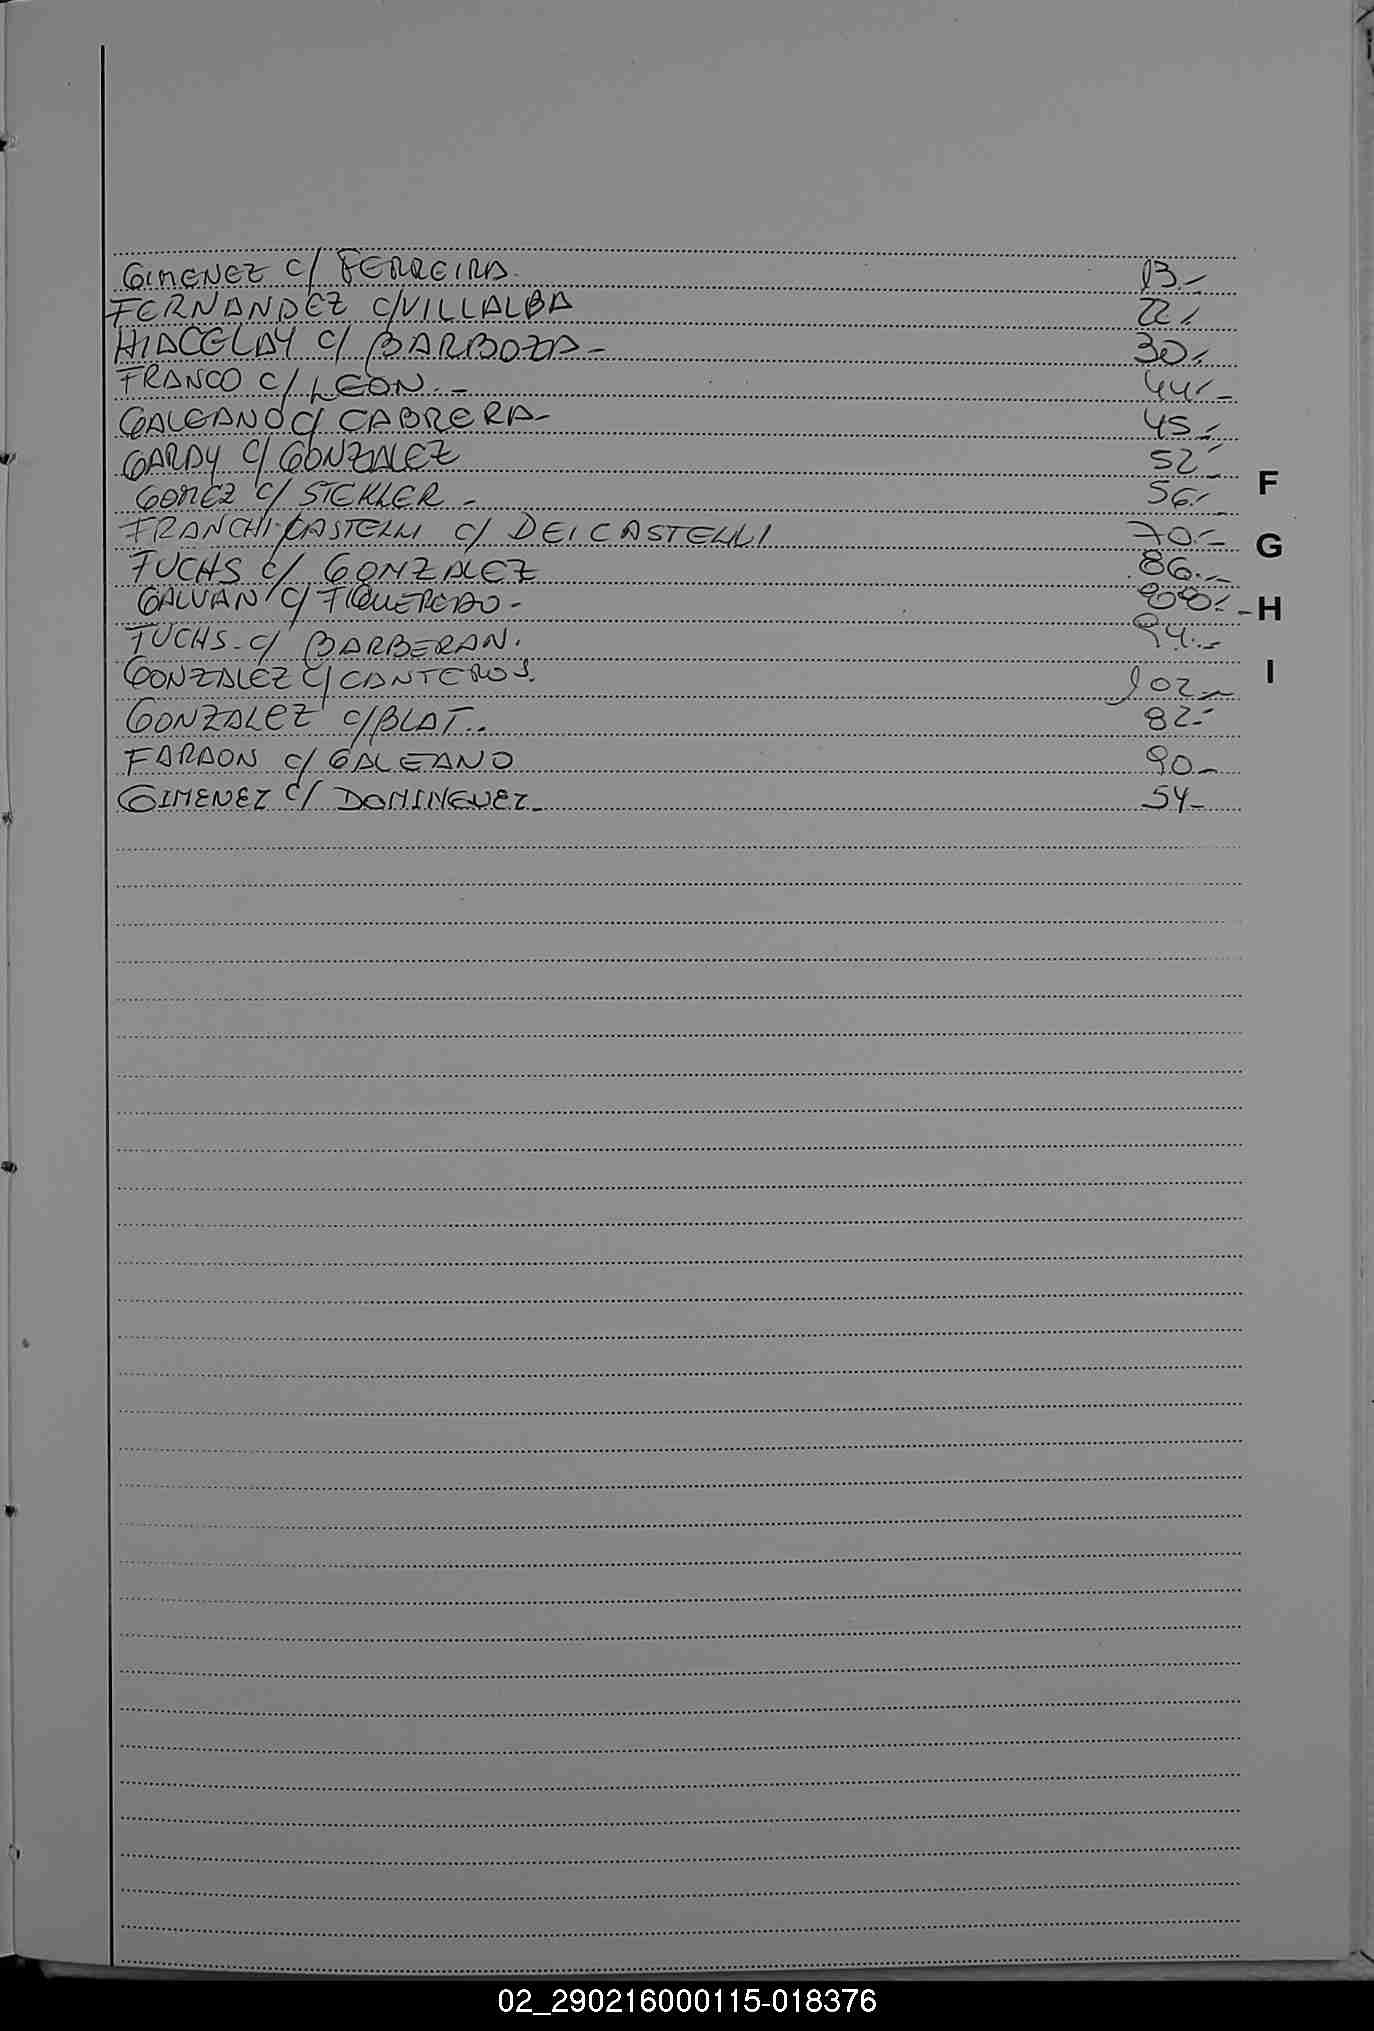 GIMENEZ C/ FERREIRA. 13.-
FERNANDEZ C/VILLALBA 22.-
HIACELAY C/ BARBOZA- 30.-
FRANCO C/ LEON.- 44.-
GALEANO C/ CABRERA- 45.-
GARAY C/ GONZALEZ 52.-
GOMEZ C/ STEKLER.- 56.-
F
FRANCHI CASTELLI C/ DEI CASTELLI 70.-
G
FUCHS C/ GONZALEZ 86.-
GALVAN C/ FIGUEREDO-
H
FUCHS. C/ BARBERAN. 94.-
GONZALEZ C/ CANTEROS. 102.-
I
GONZALEZ C/BLAT.. 82.-
FARAON C/ GALEANO 90.-
GIMENEZ C/ DOMINGUEZ- 54-
02_290216000115-018376